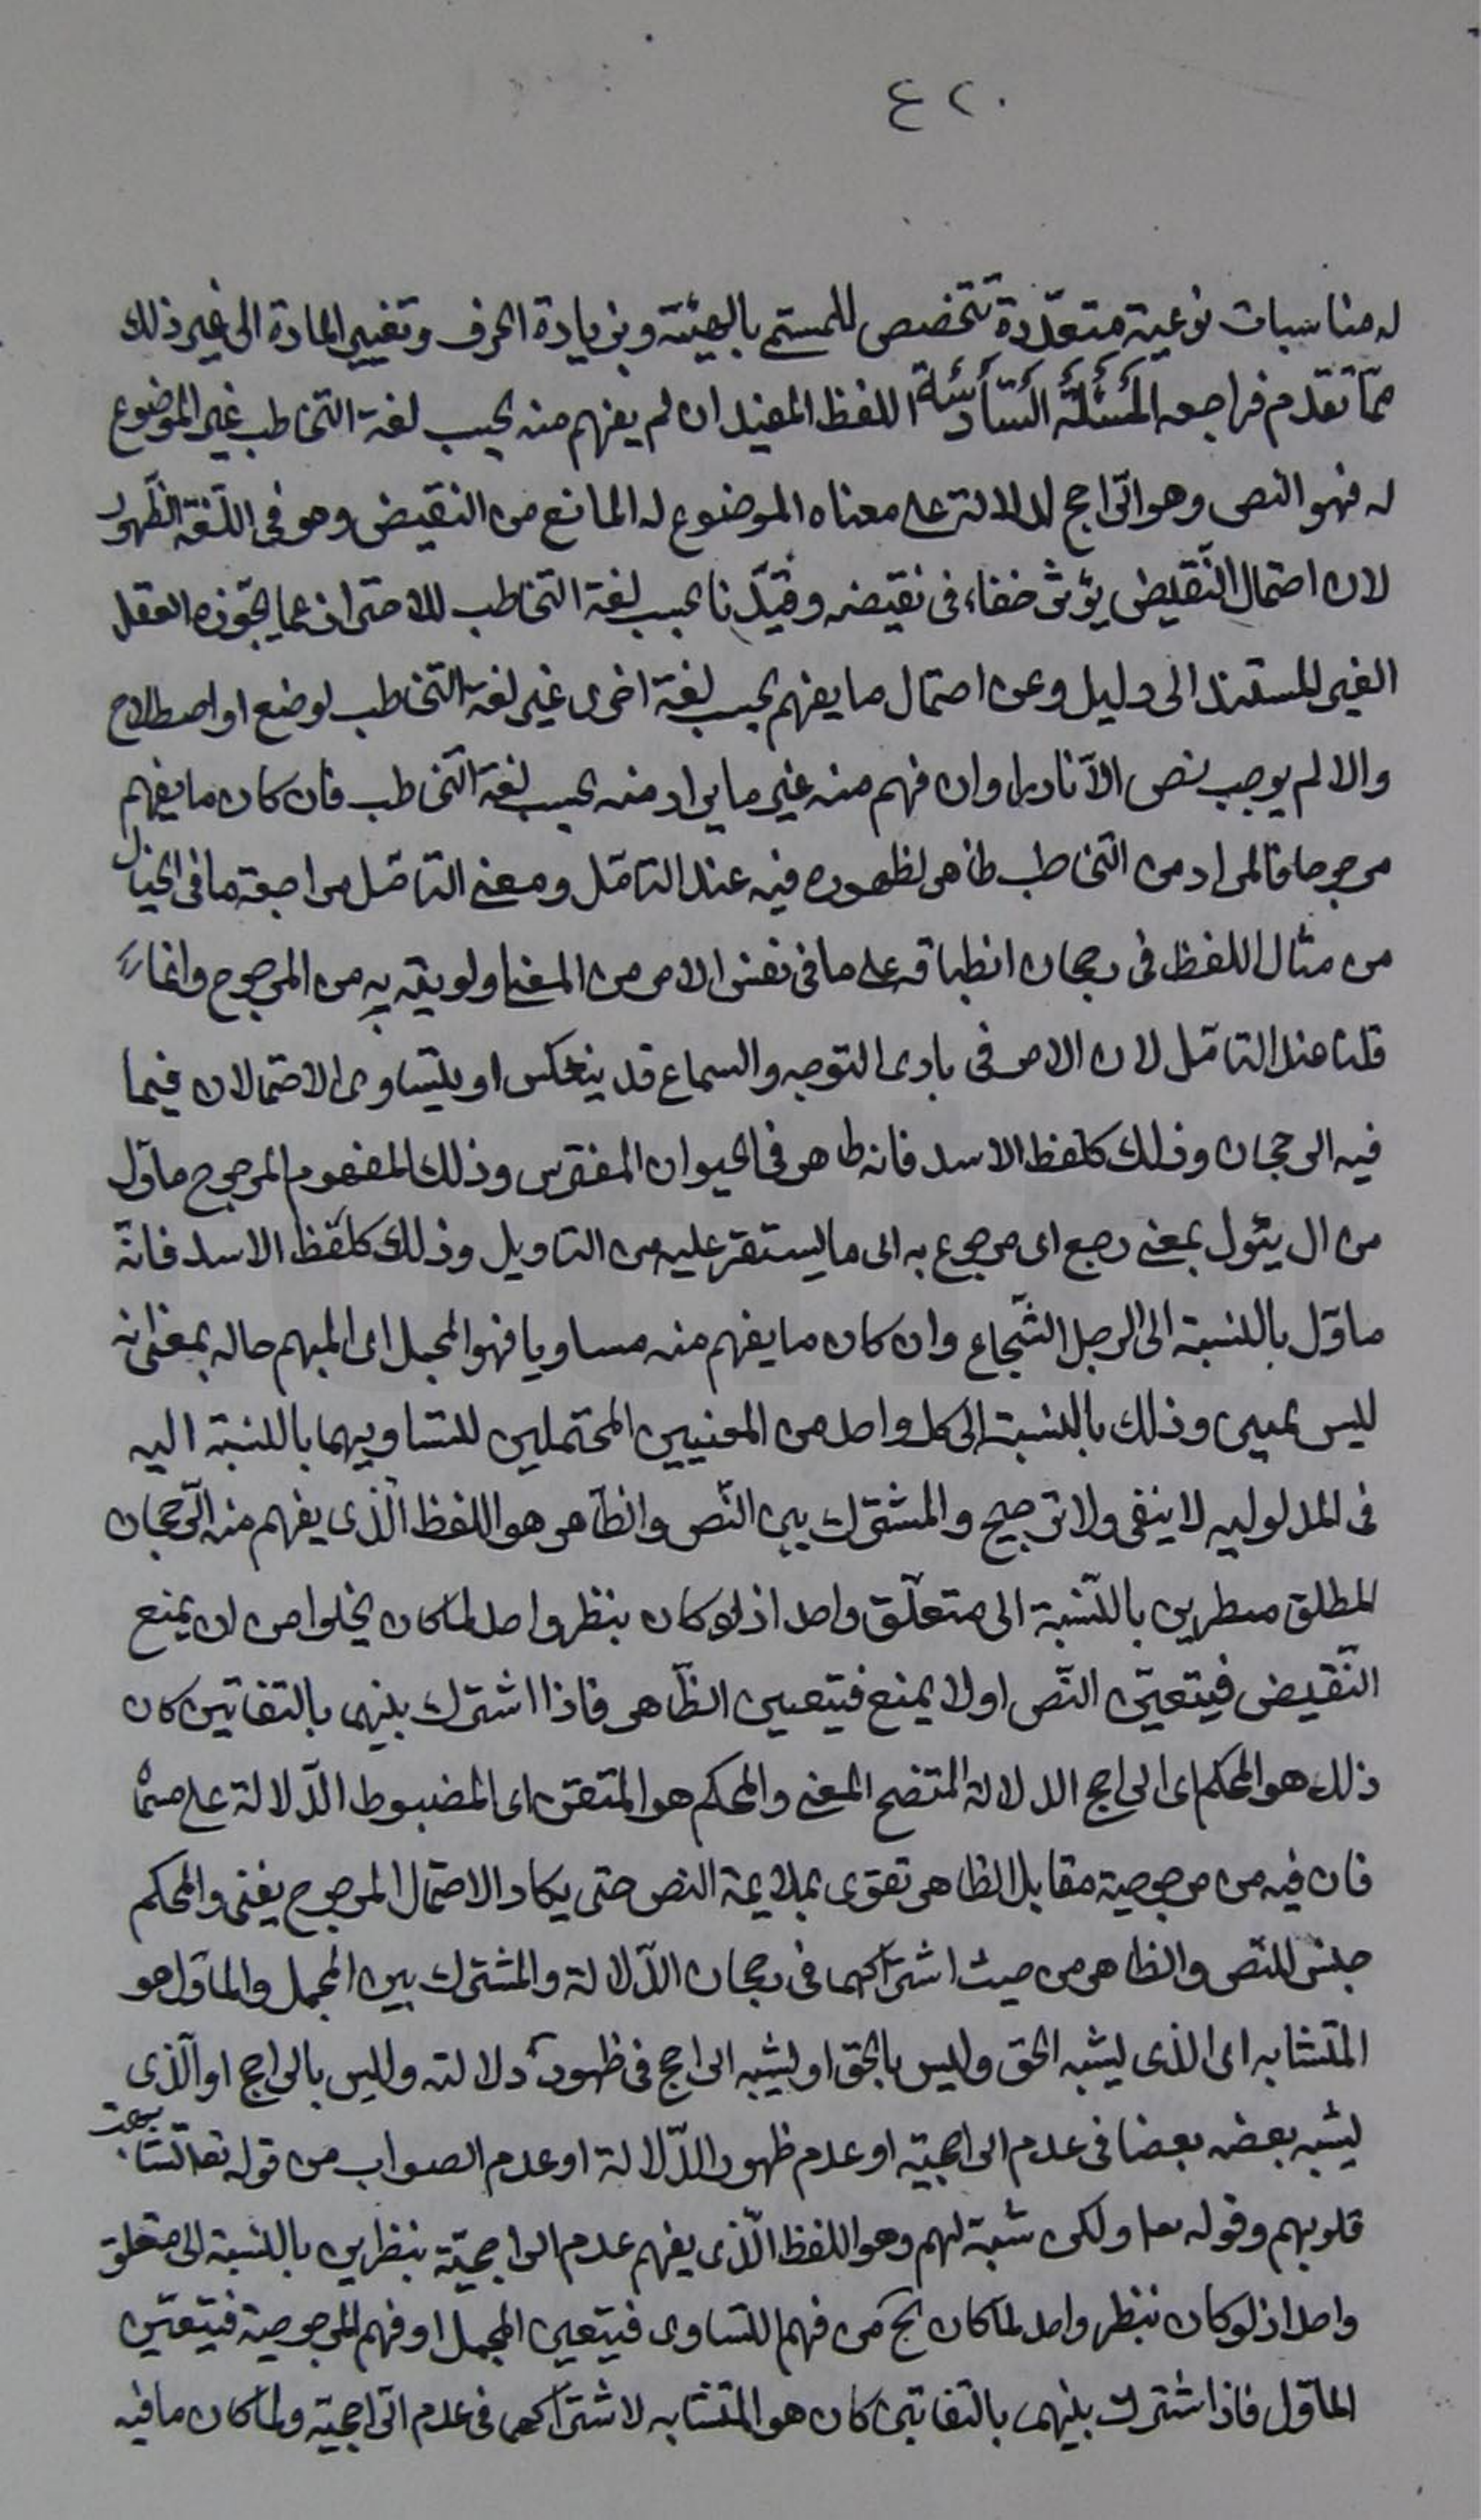 ٤٢٠
له مناسبات نوعية متعدّدة تتخصص للمستم بالهيئة وبزيادة الحرف وتغيير المادة الى غير ذلك
ممّا تقدّم فراجعه المسئلة السّادسة اللفظ المفيد ان لم يفهم منه بحسب لغة التخاطب غير الموضوع
له فهو النص وهو الرّاجح الدلالة على معناه الموضوع له المانع من النقيض وهو فى اللّغة الظّهور
لان احتمال النّقيض يؤثر خفاء فى نقيضه وقيّدنا بحسب لغة التخاطب للاحتراز عما يجوّزه العقل
الغير المستند الى دليل وعن احتمال ما يفهم بحسب لغة اخرى غير لغة التخاطب لوضع او اصطلاح
والا لم يوجب نص الّا نادرا وان فهم منه غير ما يراد منه بحسب لغة التخاطب فان كان ما يفهم
مرجوحا فالمراد من التخاطب ظاهر لظهوره فيه عند التامّل ومعنى التامّل مراجعة ما فى الخيال
من مثال اللفظ فى رجحان انطباقه على ما فى نفس الامر من المعنى ولو بقرينة من المرجوح وانما
قلنا عند التامّل لان الامر فى بادى التوجه والسماع قد ينعكس او يتساوى الاحتمالان فيما
فيه الرجحان وذلك كلفظ الاسد فانه ظاهر فى الحيوان المفترس وذلك المفهوم المرجوح ماوّل
من ال يئول بمعنى رجع اى مرجوع به الى ما يستقر عليه من التاويل وذلك كلفظ الاسد فانّه
ماوّل بالنسبة الى الرجل الشّجاع وان كان ما يفهم منه مساويا فهو المجمل اى المبهم حاله بمعنى انه
ليس بمبين وذلك بالنسبة الى كل واحد من المعنيين المحتملين لتساويهما بالنسبة اليه
فى المدلولية لا ينفى ولا ترجيح والمشترك بين النّص والظّاهر هو اللفظ الّذى يفهم منه الرّجحان
المطلق بالنّسبة الى متعلّق واحد اذ لو كان بنظر واحد لما كان يخلوا من ان يمنع
النّقيض فيتعيّن النّص او لا يمنع فيتعين الظّاهر فاذا اشترك بينهما بالتفاتين كان
ذلك هو المحكم اى الراجح الدلالة المتضح المعنى والمحكم هو المتقن اى المضبوط الدّلالة على
فان فيه من مرجوحية مقابل الظاهر تقوى بملايمة النص حتى يكاد الاحتمال المرجوح يفنى والمحكم
جنس للنّص والظاهر من حيث اشتراكهما فى رجحان الدّلالة والمشترك بين المجمل والماوّل هو
المتشابه اى الذى يشبه الحق وليس بالحق او يشبه الراجح فى ظهور دلالته وليس بالراجح او الّذى
يشبه بعضه بعضا فى عدم الراجحية او عدم ظهور الدّلالة او عدم الصواب من قوله تعا تشابهت
قلوبهم وقوله تعا ولكن شبّه لهم وهو اللفظ الّذى يفهم عدم الراجحيّة بنظرين بالنسبة الى متعلق
واحد اذ لو كان بنظر واحد لما كان يخ من فهم التساوى فيتعين المجمل او فهم المرجوحية فيتعيّن
الماوّل فاذا اشترك بينهما بالتفاتين كان هو المتشابه لاشتراكهما فى عدم الرّاجحية ولما كان ما فيه